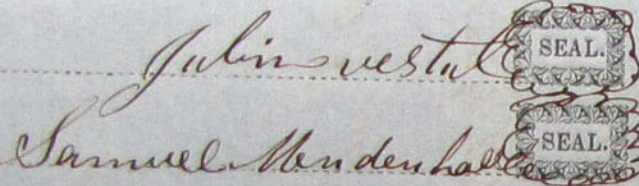 Jabin vestal SEAL.
Samuel Mendenhall SEAL.